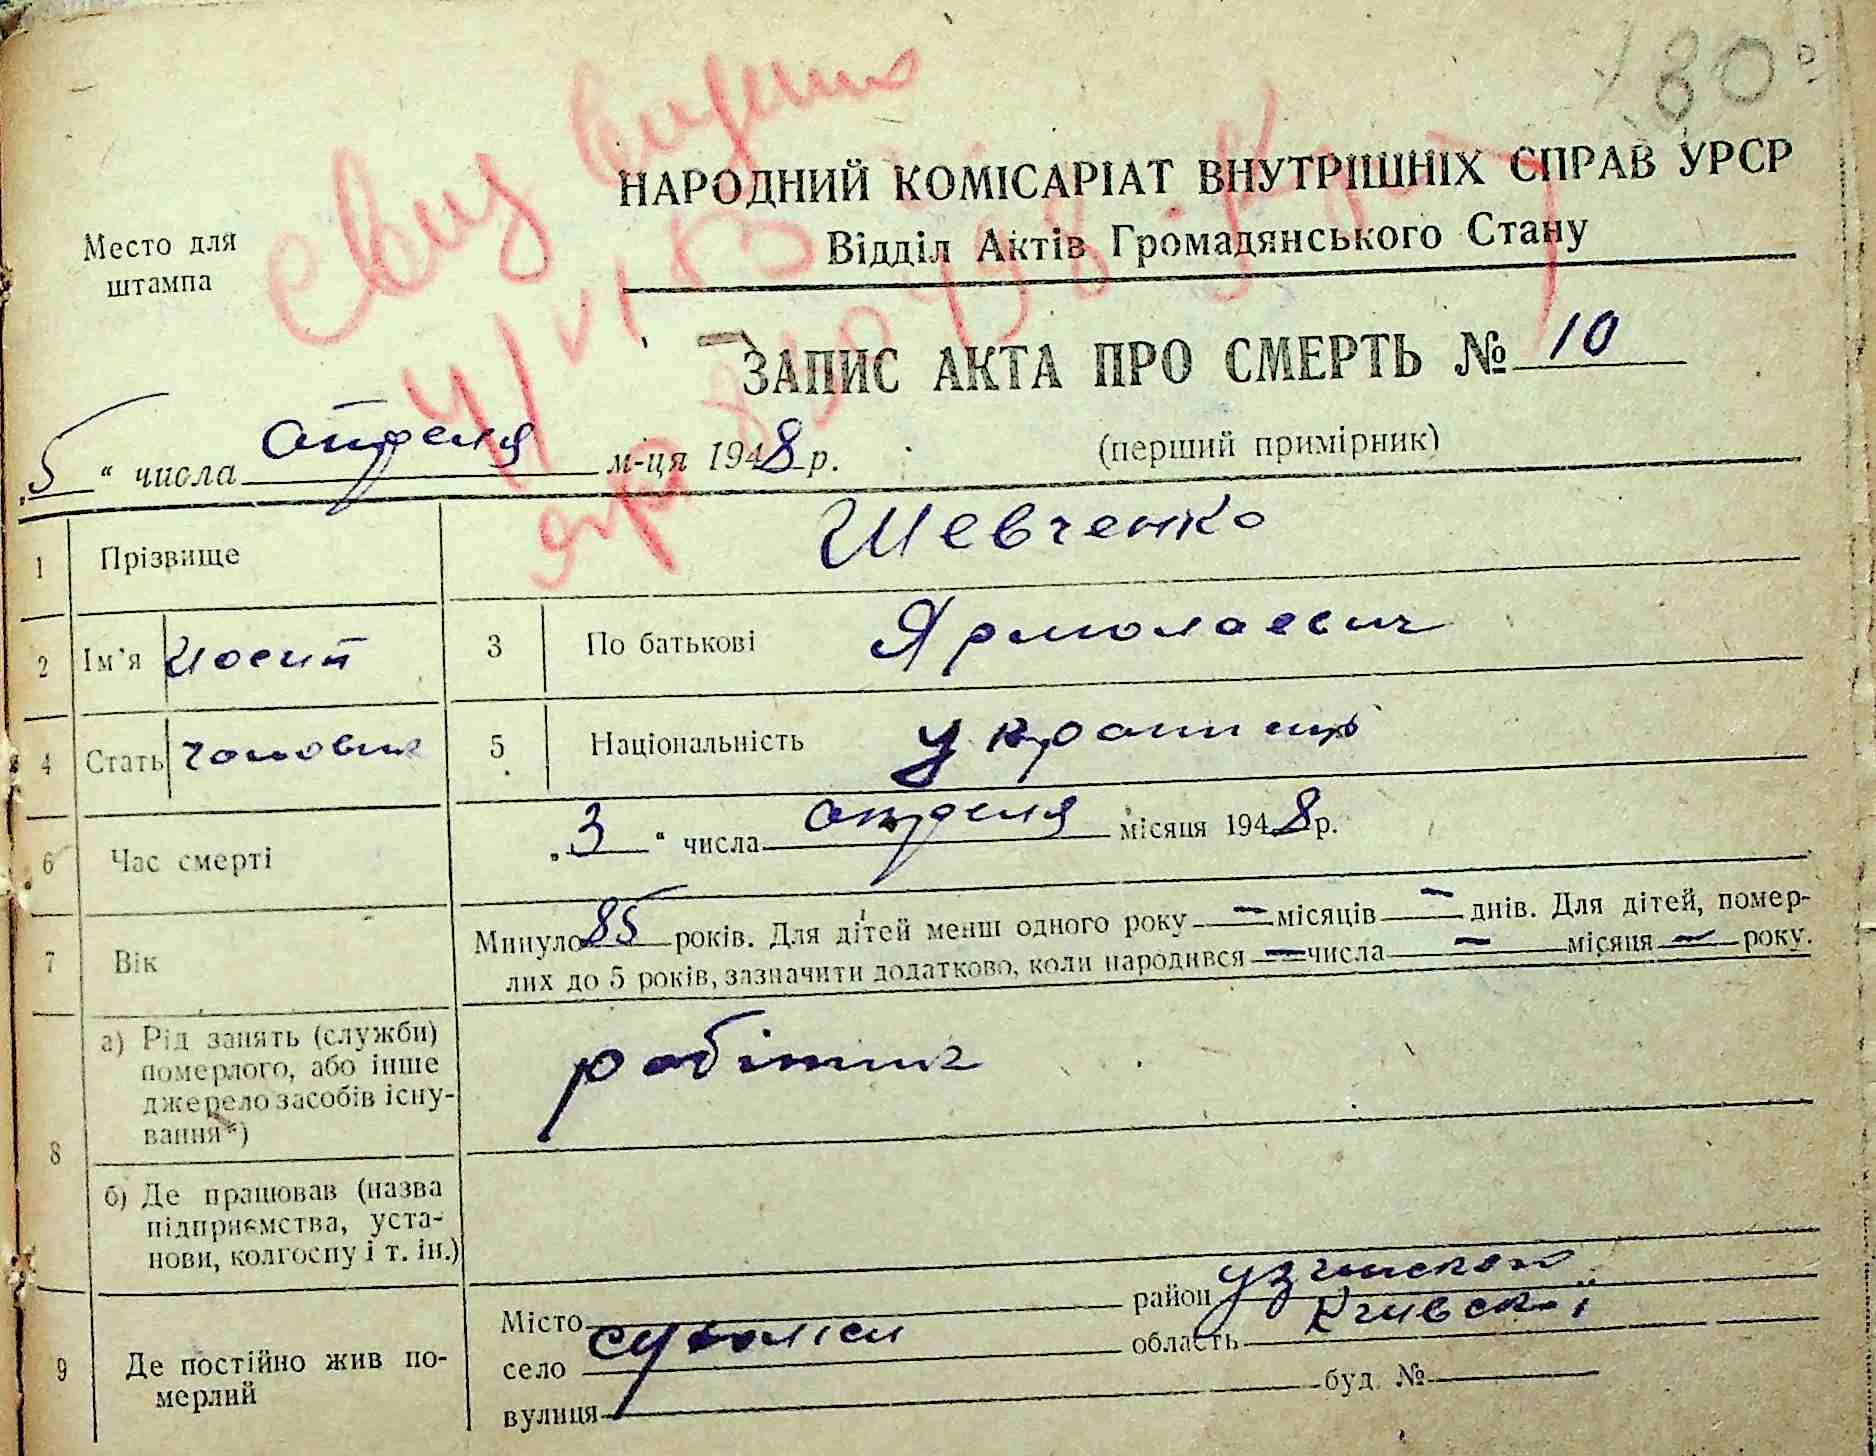 180
НАРОДНИЙ КОМІСАРІАТ ВНУТРІШНІХ СПРАВ УРСР
Відділ Актів Громадянського Стану
Место для
штампа
ЗАПИС АКТА ПРО СМЕРТЬ № 10
„5“ числа апреля м-ця 1948 р.
(перший примірник)
1 Прізвище Шевченко
2 Ім'я Иосип 3 По батькові Ярмолаевич
4 Стать чоловик 5 Національність українць
6 Час смерті „3“ числа апреля місяця 1948 р.
7 Вік Минуло 85 років. Для дітей менш одного року — місяців — днів. Для дітей, помер-
лих до 5 років, зазначити додатково, коли народився — числа — місяця — року.
8 а) Рід занять (служби)
померлого, або інше
джерело засобів існу-
вання*)
робітник
б) Де працював (назва
підприємства, уста-
нови, колгоспу і т. ін.)
9 Де постійно жив по-
мерлий
Місто район Узинской
село область Киівскої
вулиця буд. №